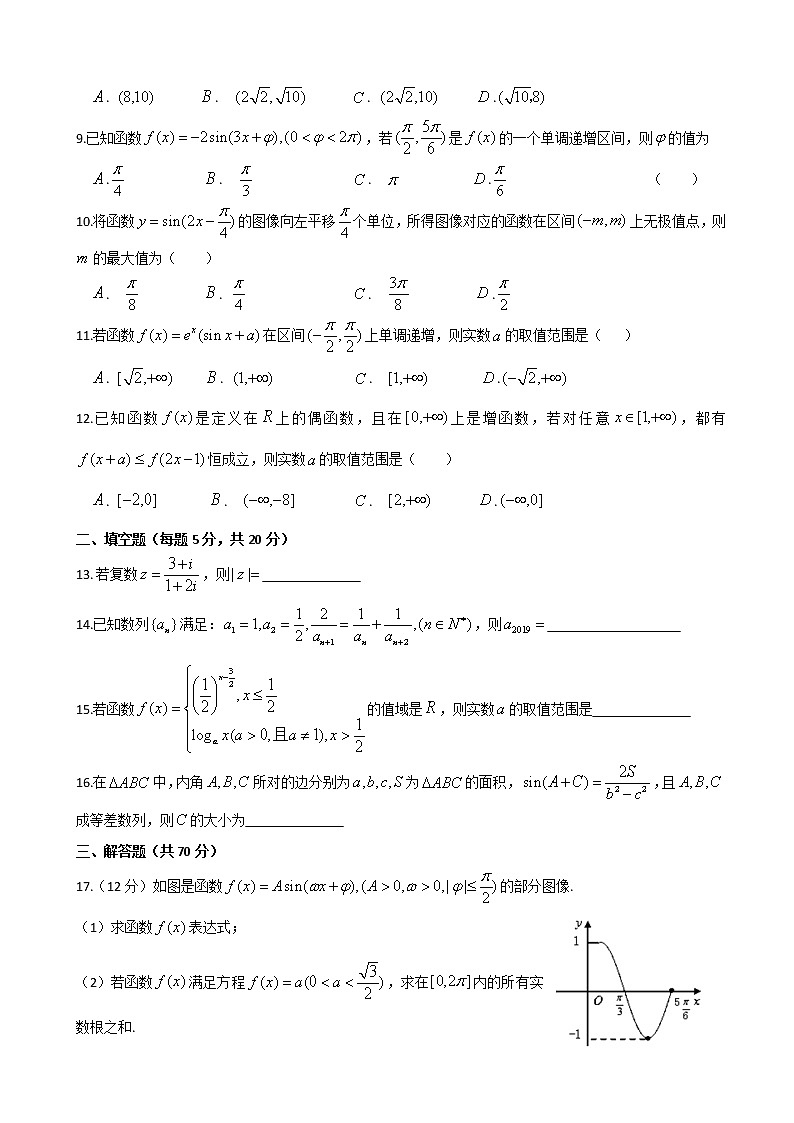 A. (8,10)  B. (2√2, √10)  C. (2√2,10)  D.(√10,8)
9.已知函数 f(x)=−2sin(3x+φ),(0<φ<2π)，若(π/2,5π/6)是 f(x) 的一个单调递增区间，则φ的值为
A.π/4  B. π/3  C. π  D.π/6  (  )
10.将函数 y=sin(2x−π/4) 的图像向左平移π/4个单位，所得图像对应的函数在区间(−m,m)上无极值点，则
m 的最大值为（  ）
A. π/8  B.π/4  C. 3π/8  D.π/2
11.若函数 f(x)=e^x(sin x+a) 在区间(−π/2,π/2)上单调递增，则实数a的取值范围是（  ）
A.[√2,+∞)  B.(1,+∞)  C. [1,+∞)  D.(−√2,+∞)
12.已知函数 f(x)是定义在R上的偶函数，且在[0,+∞)上是增函数，若对任意x∈[1,+∞)，都有
f(x+a)≤f(2x−1)恒成立，则实数a的取值范围是（  ）
A.[−2,0]  B. (−∞,−8]  C. [2,+∞)  D.(−∞,0]
二、填空题（每题 5 分，共 20 分）
13. 若复数z=(3+i)/(1+2i)，则|z|=
14.已知数列{a_n}满足：a_1=1,a_2=1/2,2/a_{n+1}=1/a_n+1/a_{n+2},(n∈N*)，则a_2019=
15.若函数 f(x)={(1/2)^{n−3/2},x≤1/2
log_a x(a>0,且a≠1),x>1/2
的值域是R，则实数a的取值范围是
16.在ΔABC中,内角A,B,C所对的边分别为a,b,c,S为ΔABC的面积，sin(A+C)=2S/(b²−c²),且A,B,C
成等差数列，则C的大小为
三、解答题（共 70 分）
17.（12 分）如图是函数 f(x)=Asin(ωx+φ),(A>0,ω>0,|φ|≤π/2)的部分图像.
（1）求函数 f(x)表达式；
（2）若函数 f(x)满足方程 f(x)=a(0<a<√3/2)，求在[0,2π]内的所有实
数根之和.
y
1
O π/3 5π/6 x
−1